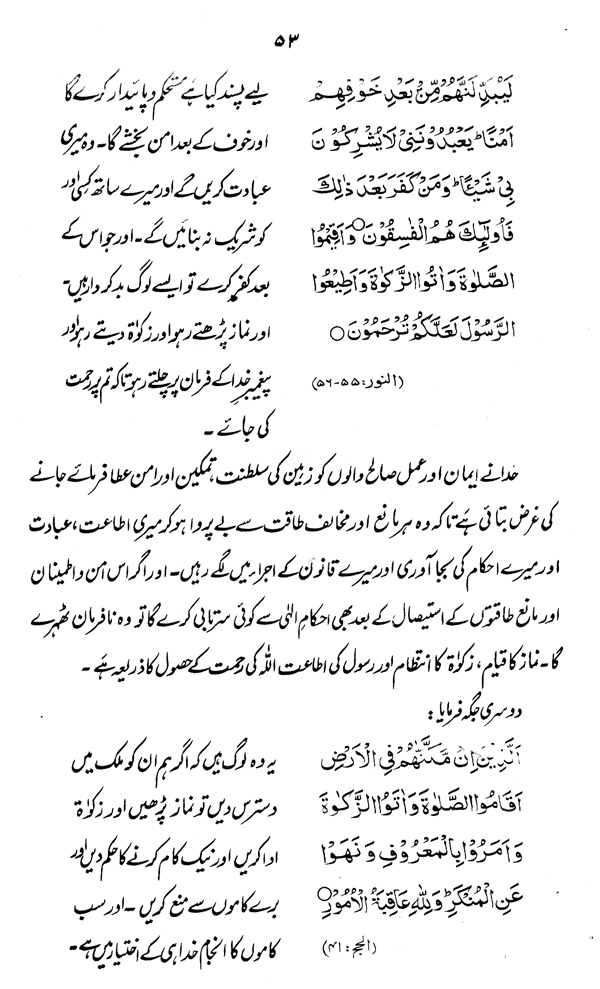 ۵۳
لَيُبَدِّلَنَّهُمْ مِّنْۢ بَعْدِ خَوْفِهِمْ
اَمْنًا ؕ يَعْبُدُوْنَنِيْ لَا يُشْرِكُوْنَ
بِيْ شَيْـًٔا ؕ وَمَنْ كَفَرَ بَعْدَ ذٰلِكَ
فَاُولٰٓئِكَ هُمُ الْفٰسِقُوْنَ ○ وَاَقِيْمُوا
الصَّلٰوةَ وَاٰتُوا الزَّكٰوةَ وَاَطِيْعُوا
الرَّسُوْلَ لَعَلَّكُمْ تُرْحَمُوْنَ ○
(النور: ۵۵-۵۶)
لیے پسند کیا ہے مستحکم و پائیدار کرے گا
اور خوف کے بعد امن بخشے گا۔ وہ میری
عبادت کریں گے اور میرے ساتھ کسی اور
کو شریک نہ بنائیں گے۔ اور جو اس کے
بعد کفر کرے تو ایسے لوگ بدکردار ہیں۔
اور نماز پڑھتے رہو اور زکوٰۃ دیتے رہو اور
پیغمبرِ خدا کے فرمان پر چلتے رہو تاکہ تم پر رحمت
کی جائے۔
خدا نے ایمان اور عمل صالح والوں کو زمین کی سلطنت، تمکین اور امن عطا فرمائے جانے
کی غرض بتائی ہے تاکہ وہ ہر مانع اور مخالف طاقت سے بے پروا ہو کر میری اطاعت، عبادت
اور میرے احکام کی بجا آوری اور میرے قانون کے اجراء میں لگے رہیں۔ اور اگر اس امن و اطمینان
اور مانع طاقتوں کے استیصال کے بعد بھی احکامِ الٰہی سے کوئی سرتابی کرے گا تو وہ نافرمان ٹھہرے
گا۔ نماز کا قیام، زکوٰۃ کا انتظام اور رسول کی اطاعت اللہ کی رحمت کے حصول کا ذریعہ ہے۔
دوسری جگہ فرمایا:
اَلَّذِيْنَ اِنْ مَّكَّنّٰهُمْ فِي الْاَرْضِ
اَقَامُوا الصَّلٰوةَ وَاٰتَوُا الزَّكٰوةَ
وَاَمَرُوْا بِالْمَعْرُوْفِ وَنَهَوْا
عَنِ الْمُنْكَرِ ؕ وَلِلّٰهِ عَاقِبَةُ الْاُمُوْرِ ○
(الحج: ۴۱)
یہ وہ لوگ ہیں کہ اگر ہم ان کو ملک میں
دسترس دیں تو نماز پڑھیں اور زکوٰۃ
ادا کریں اور نیک کام کرنے کا حکم دیں اور
برے کاموں سے منع کریں۔ اور سب
کاموں کا انجام خدا ہی کے اختیار میں ہے۔